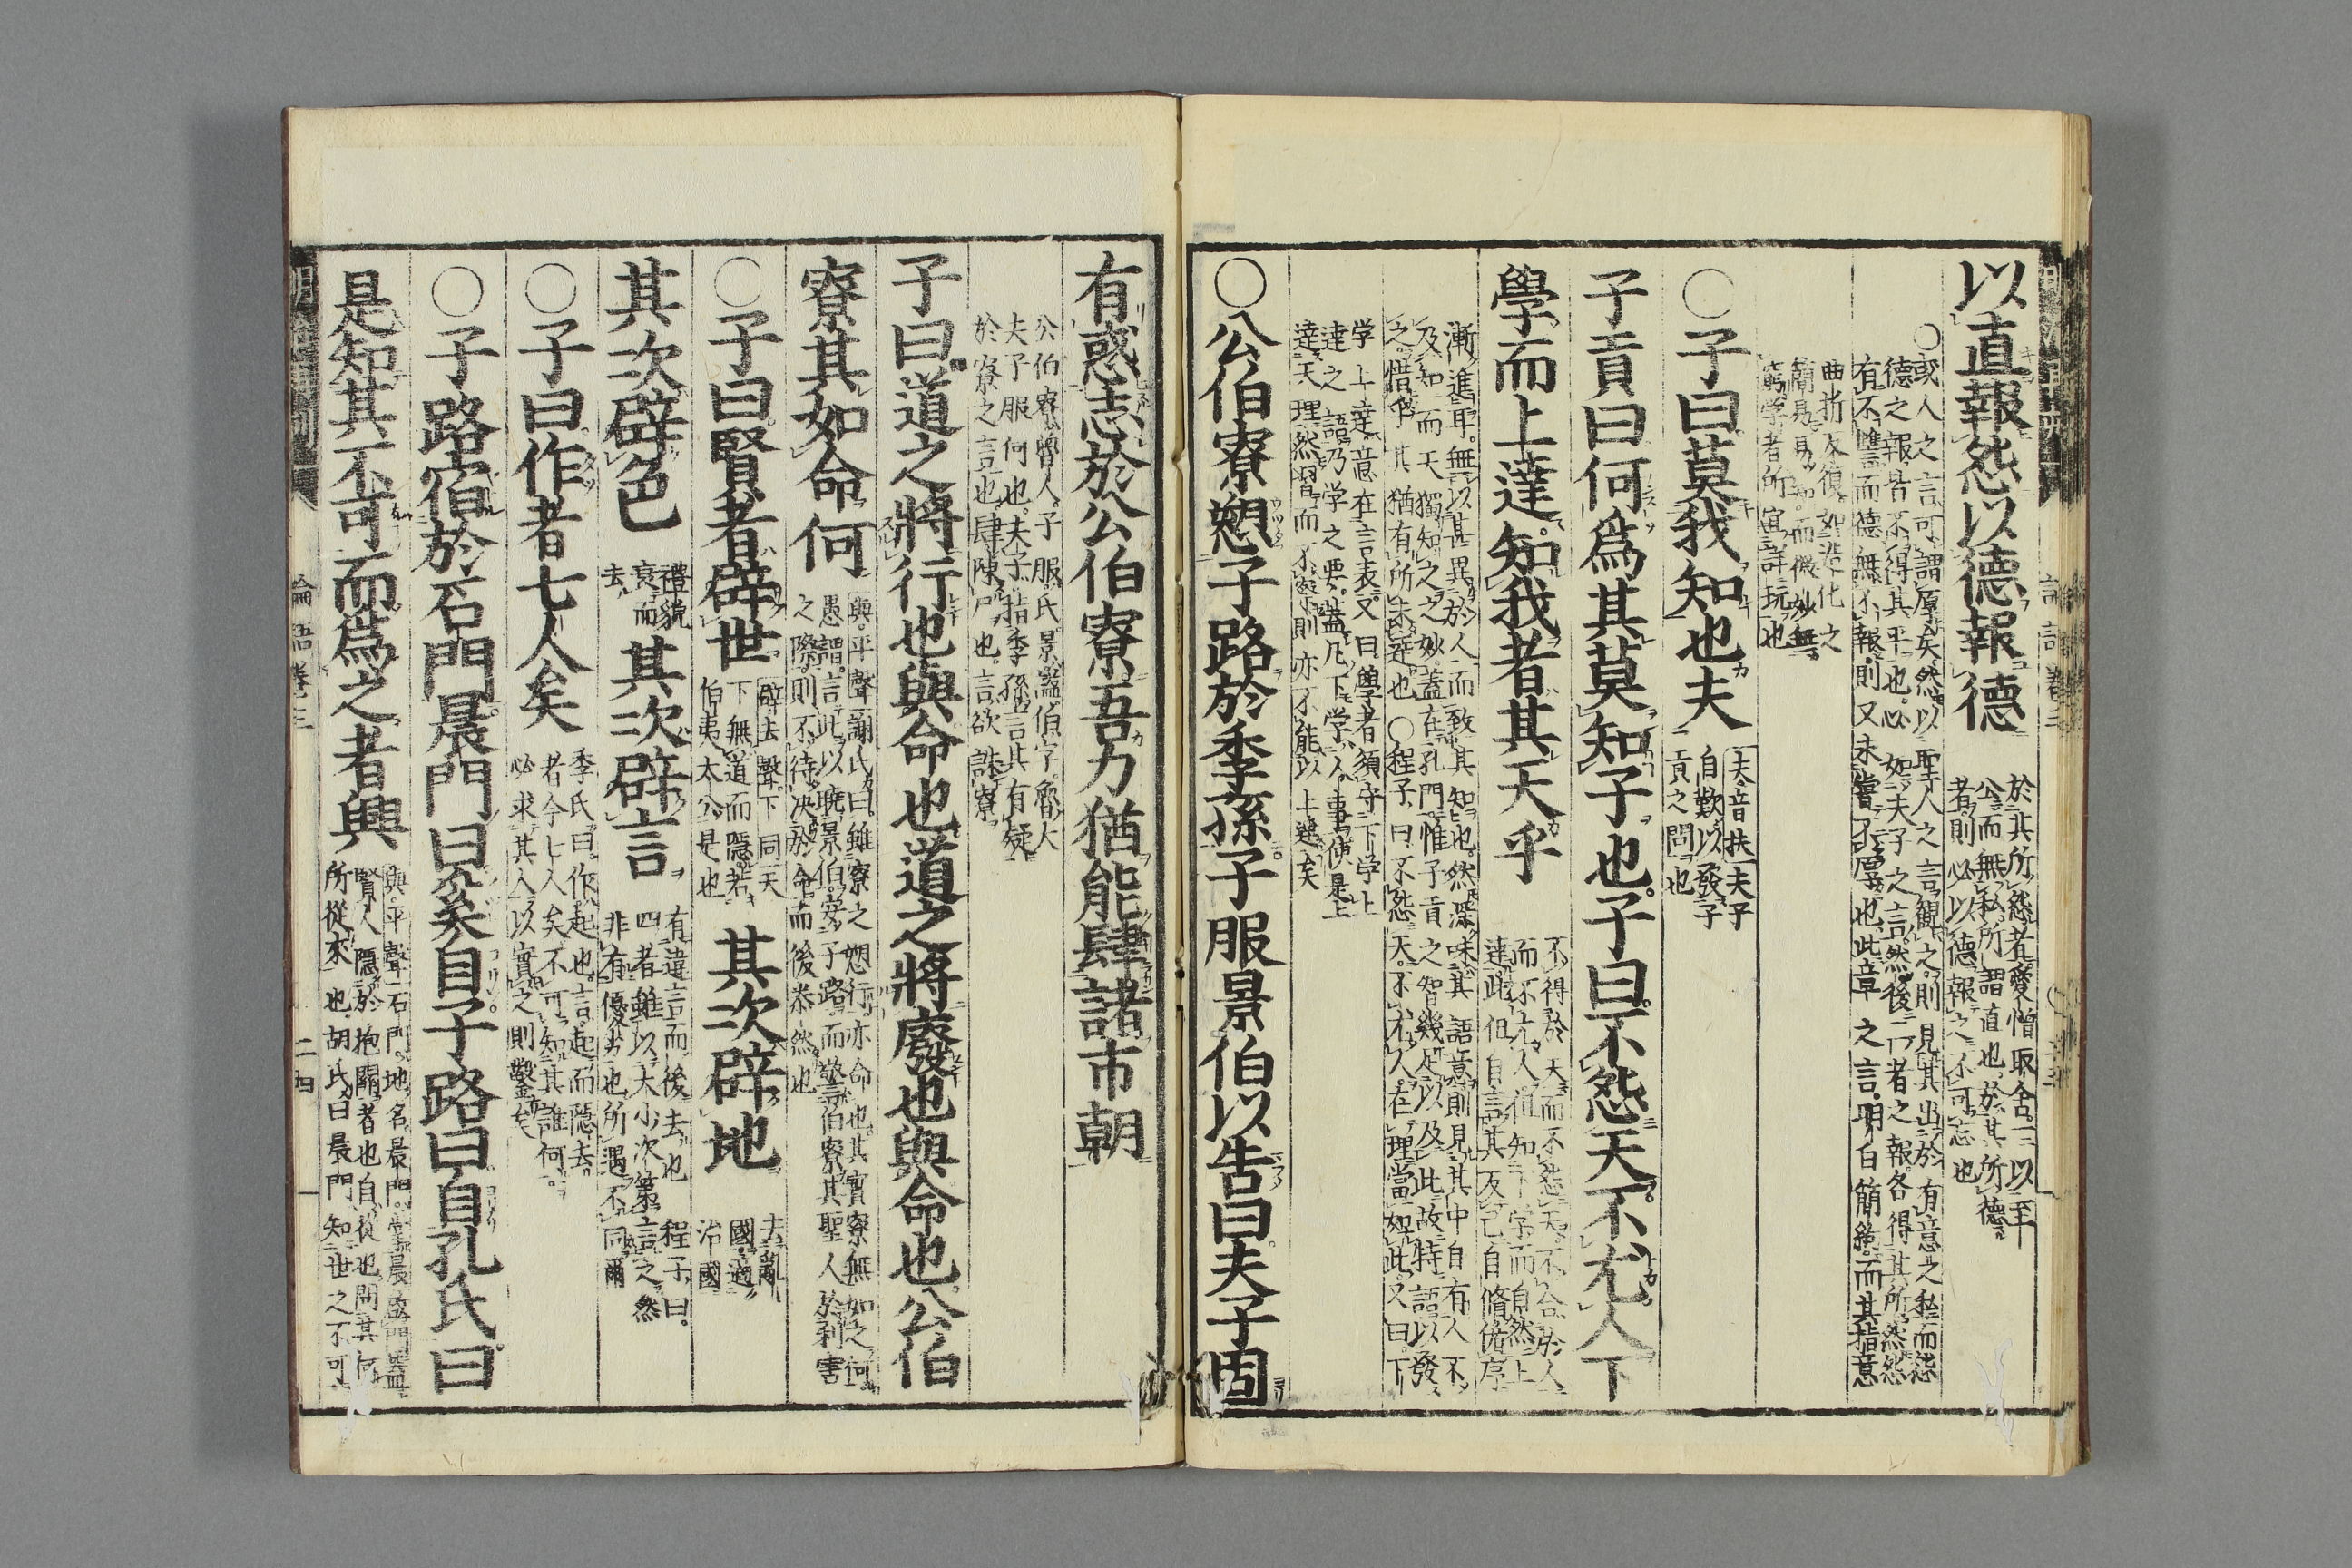 以直報怨以德報德
於其所怨者愛憎取舍一以至
公而無私所謂直也於其所德
者則必以德報之不可忘也
○或人之言可謂厚矣然以聖人之言觀之則見其出於有意之私而怨
德之報皆不得其平也必如夫子之言然後二者之報各得其所然怨
有不讐而德無不報則又未嘗不厚也此章之言明白簡約而其指意
曲折反復如造化之
簡易易知而微妙無
窮学者所宜詳玩也
○子曰莫我知也夫
夫音扶夫子
自歎以發子
貢之問也
子貢曰何爲其莫知子也子曰不怨天不尤人下
學而上達知我者其天乎
不得於天而不怨天不合於人
而不尤人但知下学而自然上
達此但自言其反己自脩循序
漸進耳無以甚異於人而致其知也然深味其語意則見其中自有人不
及知而天獨知之之妙蓋在孔門惟子貢之智幾足以及此故特語以發
之惜乎其猶有所未達也○程子曰不怨天不尤人在理當如此又曰下
学上達意在言表又曰學者須守下学上
達之語乃学之要蓋凡下学人事便是上
達天理然習而不察則亦不能以上達矣
○公伯寮愬子路於季孫子服景伯以告曰夫子固
有惑志於公伯寮吾力猶能肆諸市朝
公伯寮魯人子服氏景謚伯字魯大
夫子服何也夫子指季孫言其有疑
於寮之言也肆陳尸也言欲誅寮
子曰道之將行也與命也道之將廢也與命也公伯
寮其如命何
與平聲謝氏曰雖寮之愬行亦命也其實寮無如之何
愚謂言此以曉景伯安子路而警伯寮其聖人於利害
之際則不待決於命而後泰然也
○子曰賢者辟世
辟去聲下同天
下無道而隱若
伯夷太公是也
其次辟地
去亂
國適
治國
其次辟色
禮貌
衰而
去
其次辟言
有違言而後去也程子曰
四者雖以大小次第言之然
非有優劣也所遇不同爾
○子曰作者七人矣
李氏曰作起也言起而隱去
者今七人矣不可知其誰何
必求其人以實之則鑿矣
○子路宿於石門晨門曰奚自子路曰自孔氏曰
是知其不可而爲之者與
與平聲石門地名晨門掌晨啓門蓋
賢人隱於抱關者也自從也問其何
所從來也胡氏曰晨門知世之不可
論語卷三
二四